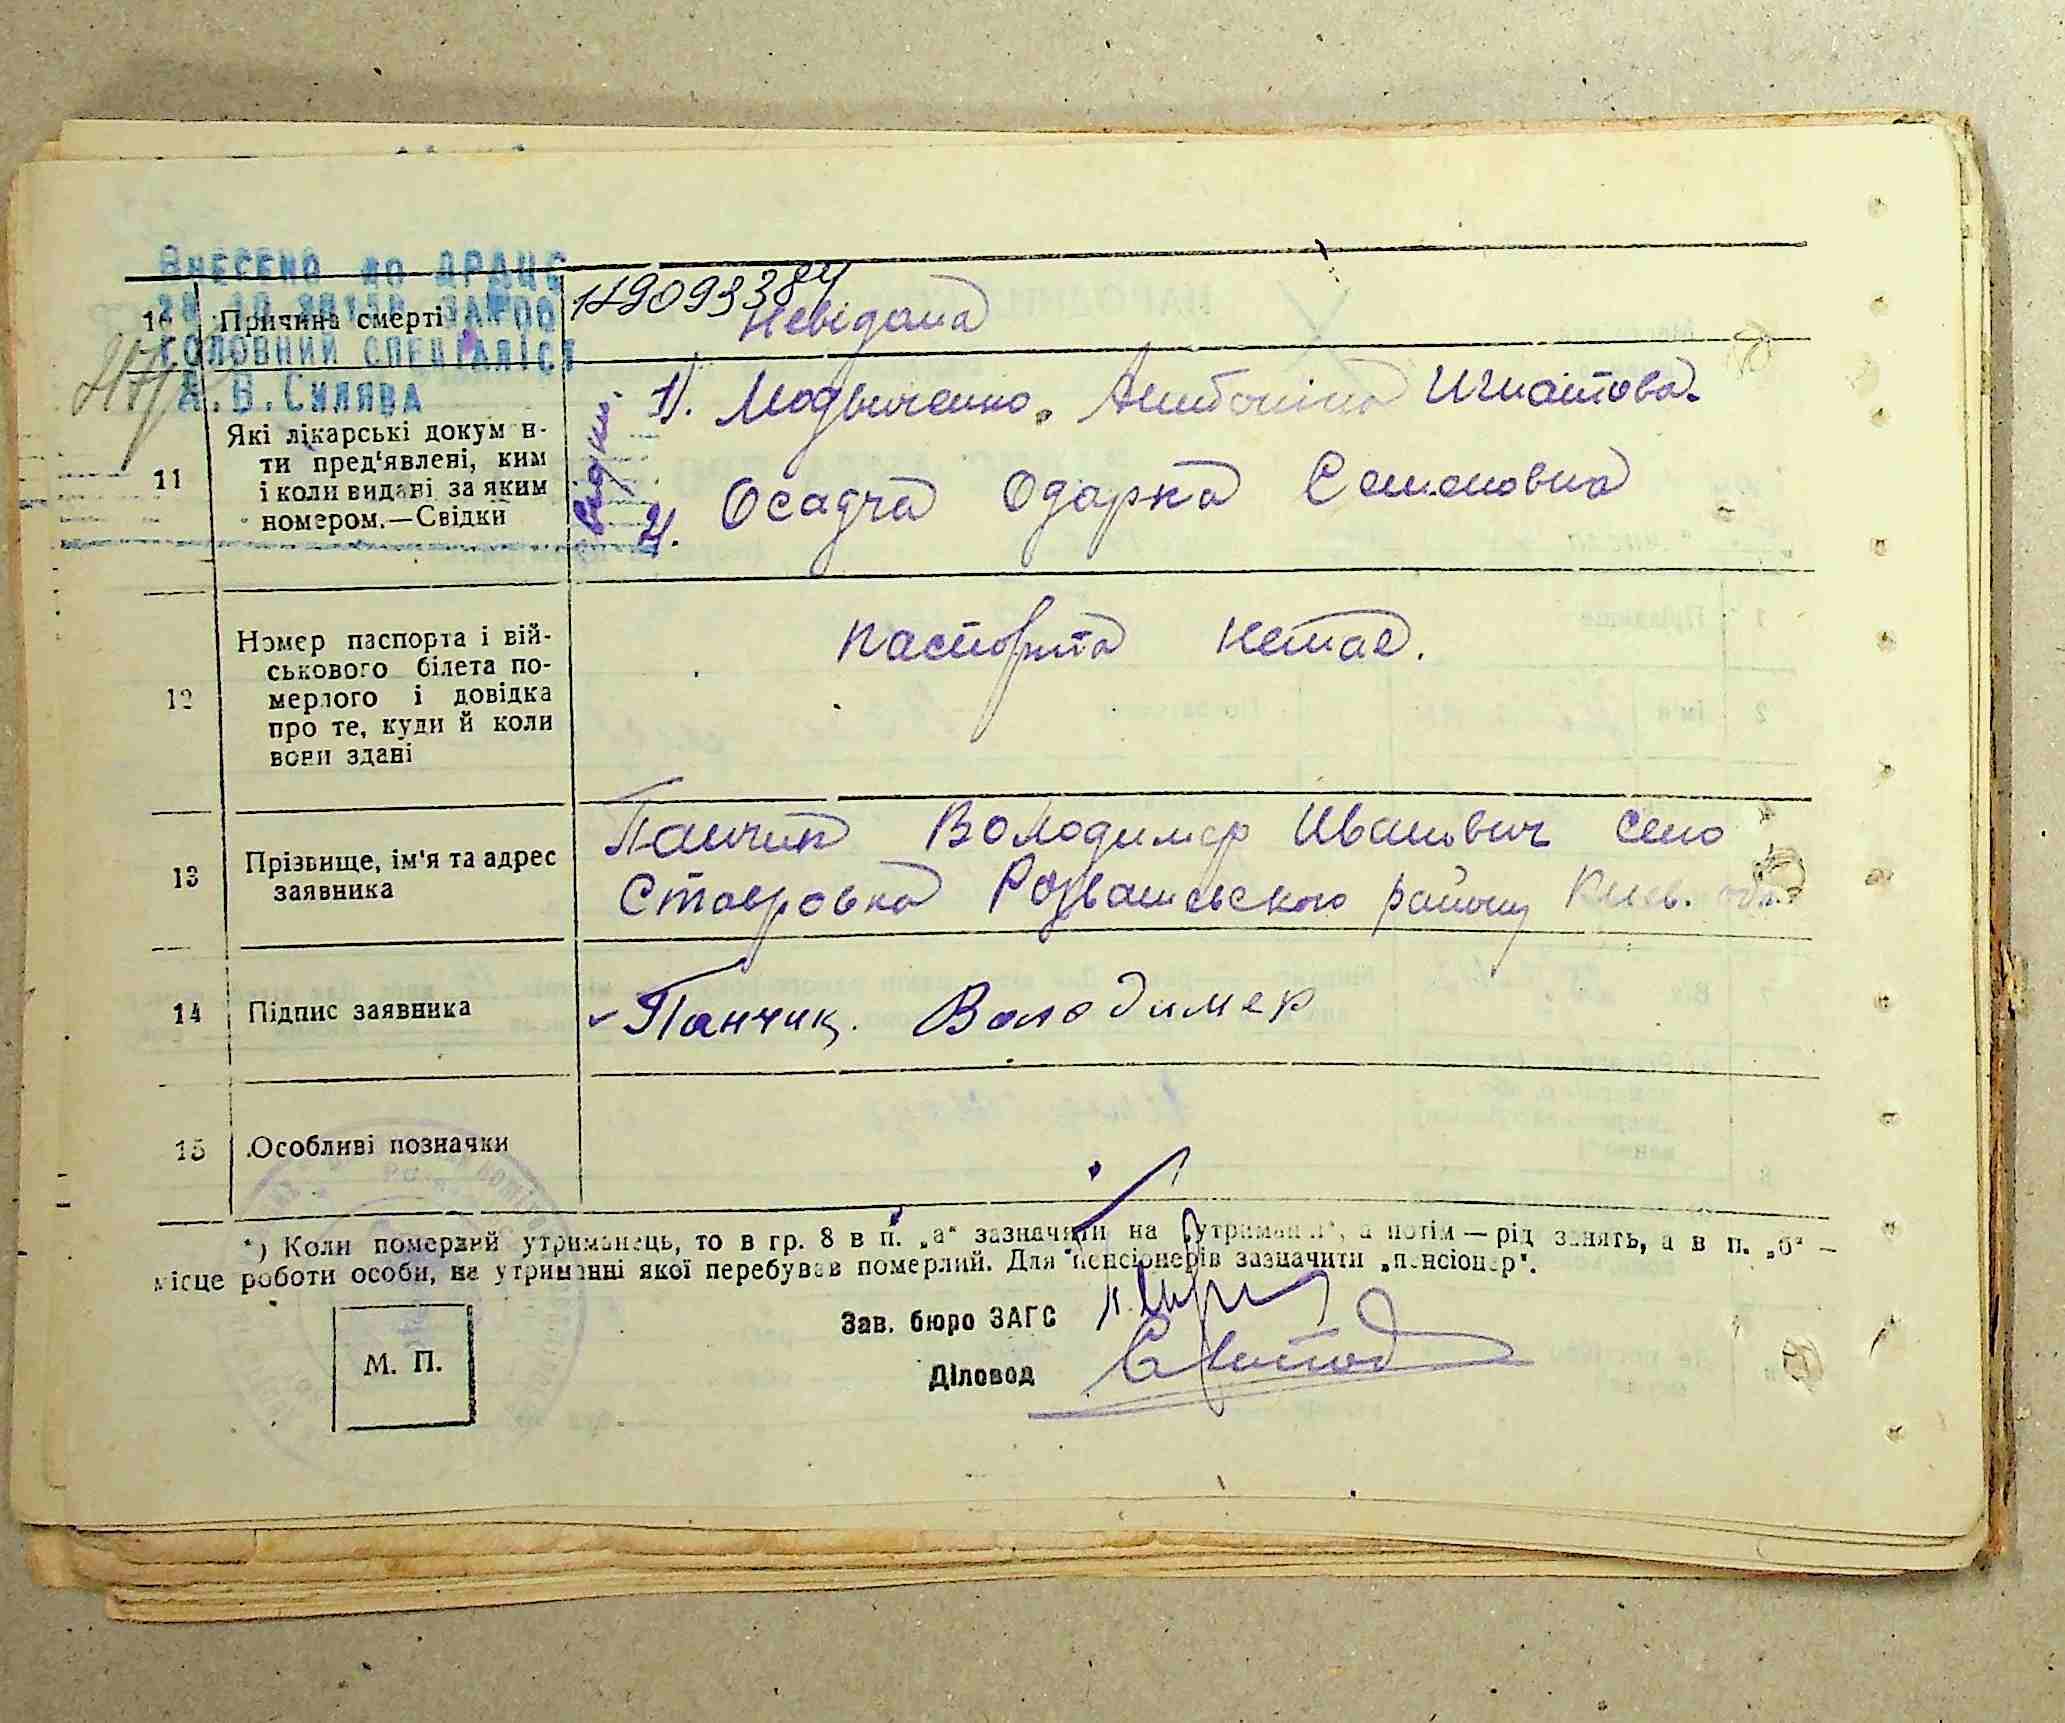 Внесено до ДРАЦС
149093384
10 Причина смерті Невідома
головний спеціаліст
А.В.Силява
11 Які лікарські докум н-
ти пред'явлені, ким
і коли видані за яким
номером.—Свідки
Свідки.
1). Антоніна Игнатова.
2. Осадча Одарка Семеновна
12 Номер паспорта і вій-
ськового білета по-
мерлого і довідка
про те, куди й коли
вони здані
паспорта немає.
13 Прізвище, ім'я та адрес
заявника
Панчик Володимер Иванович село
Ставровка Розважевского району Киев. обл.
14 Підпис заявника Панчик. Володимер
15 Особливі позначки
*) Коли померлий утриманець, то в гр. 8 в п. „а“ зазначити на утриманні“, а потім — рід занять, а в п. „б“ —
місце роботи особи, на утриманні якої перебував померлий. Для пенсіонерів зазначити „пенсіонер“.
Зав. бюро ЗАГС
Діловод
М. П.